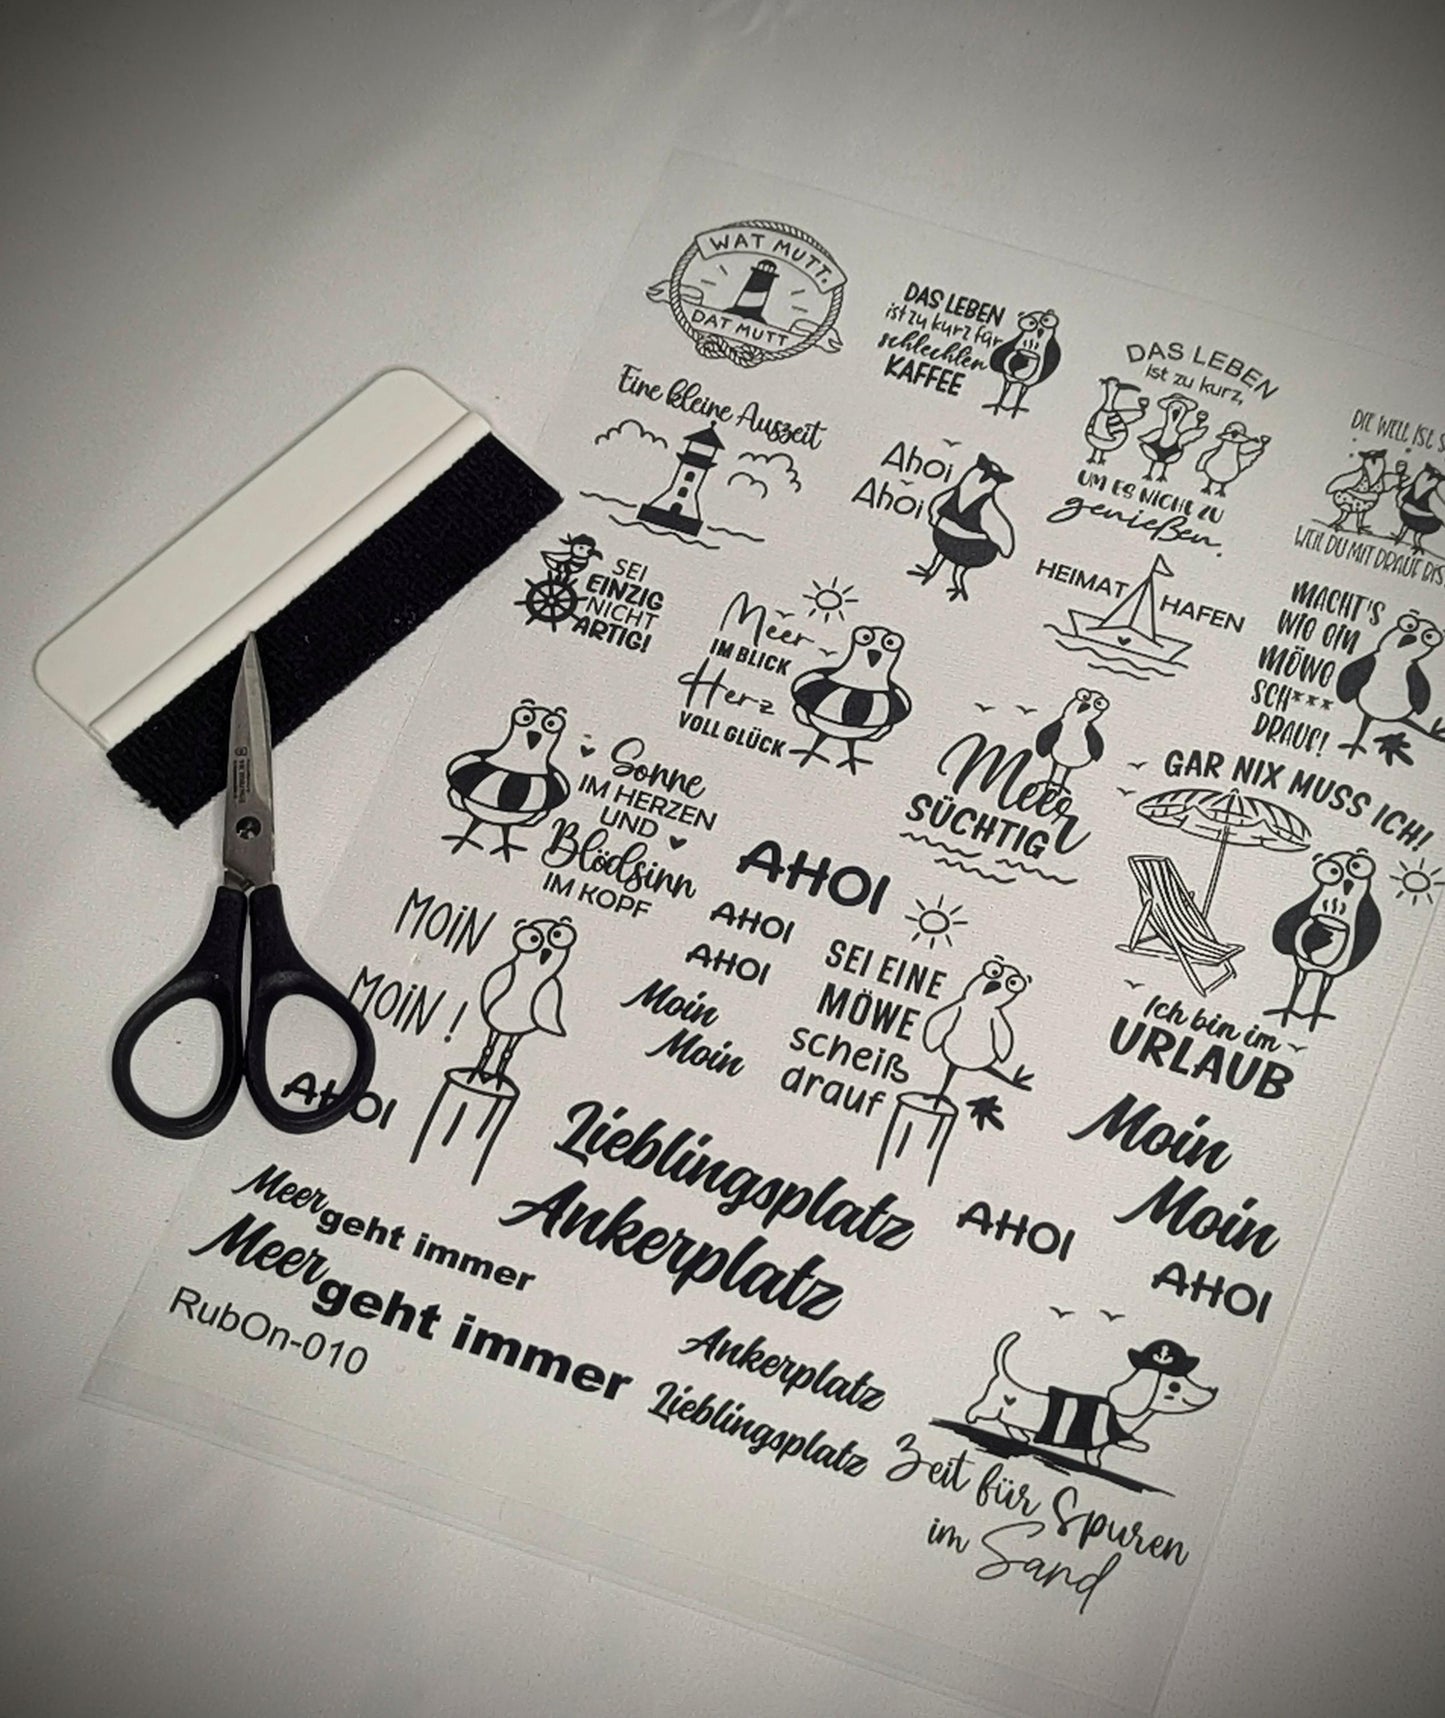 WAT MUTT.
DAT MUTT
DAS LEBEN
ist zu kurz für
schlechten
KAFFEE
DAS LEBEN
ist zu kurz,
UM ES NICHT ZU
genießen.
DIE WELT IST
WEIL DU MIT DRAUF BIS
Eine kleine Auszeit
Ahoi
Ahoi
HEIMAT HAFEN
MACHT'S
WIE EIN
MÖWE
SCH***
DRAUF!
SEI
EINZIG
NICHT
ARTIG!
Meer
IM BLICK
Herz
VOLL GLÜCK
Meer
SÜCHTIG
GAR NIX MUSS ICH!
Ich bin im
URLAUB
Sonne
IM HERZEN
UND
Blödsinn
IM KOPF
AHOI
AHOI
AHOI
Moin
Moin
SEI EINE
MÖWE
scheiß
drauf
MOIN
MOIN !
AHOI
Moin
Moin
Lieblingsplatz
Ankerplatz
AHOI
AHOI
Meer
geht immer
Meer
geht immer
RubOn-010
Ankerplatz
Lieblingsplatz
Zeit für Spuren
im Sand